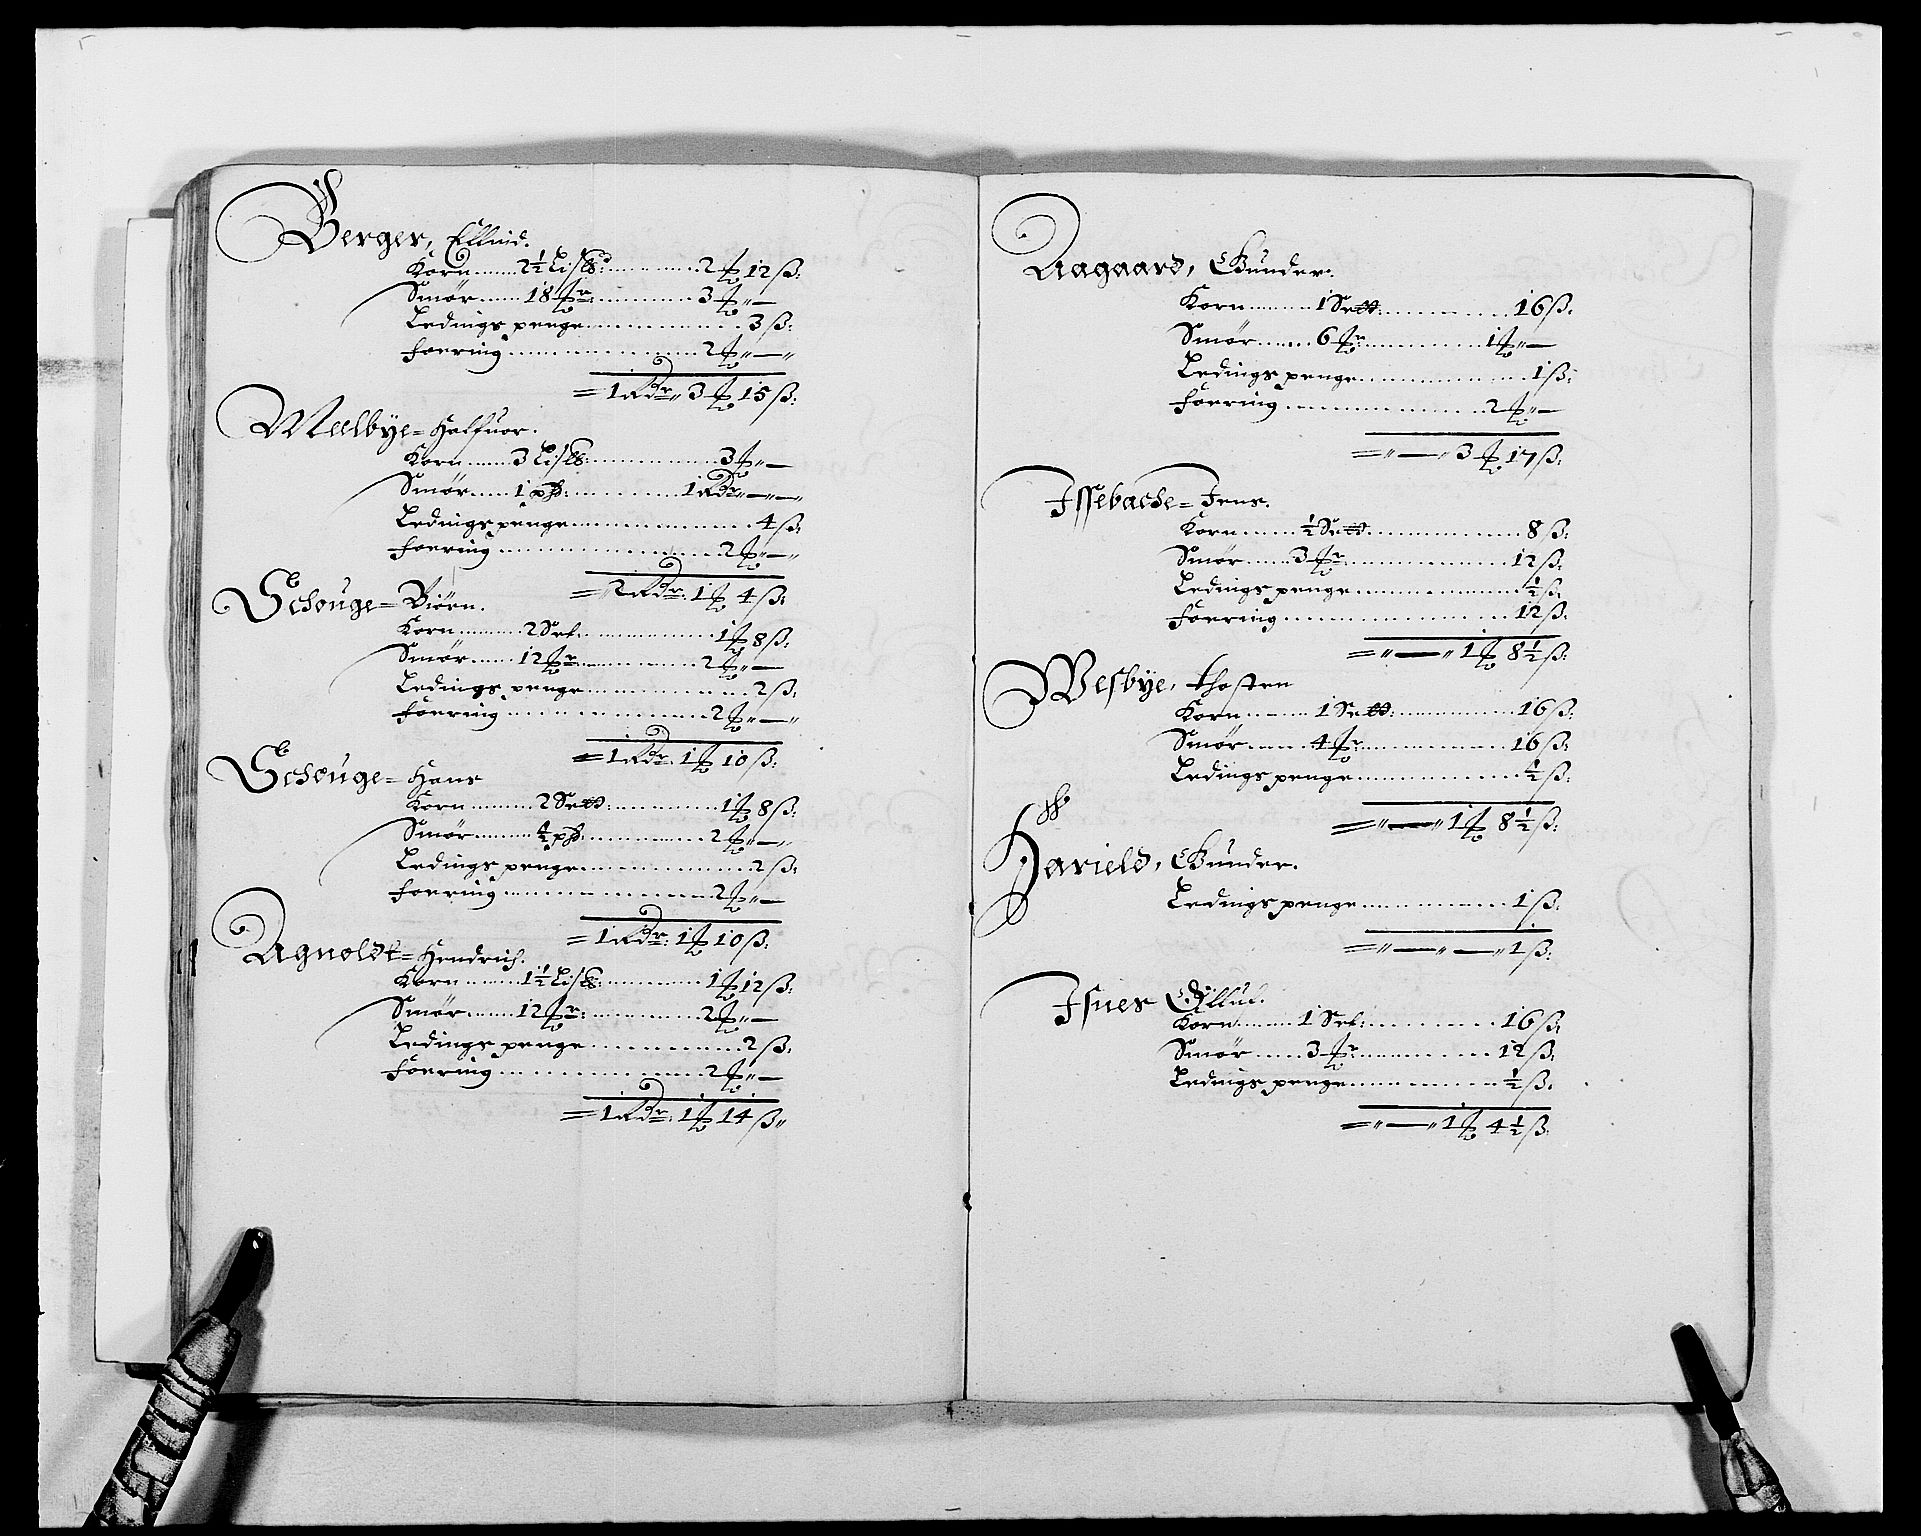 Berger, Ellind.
Korn......2½ Lispd:............2 ₶ 12 ß:
Smør......18 ₶r:............3 ₶ " —
Ledings penge................3 ß:
foering....................2 ₶ " — "
= 1 Rdr " 3 ₶ 15 ß:
Melbye = Halfuor.
Korn.......3 Lispd:..............3 ₶ " —
Smør......1 pd:............1 Rdr " — " — "
Ledings penge..................4 ß:
foering....................2 ₶ " — "
= 2 Rdr: 1 ₶ 4 ß:
Schouge = Biörn.
Korn.........2 Set:..............1 ₶ 8 ß:
Smør......12 ₶r:............2 ₶ " —
Ledings penge................2 ß:
foering....................2 ₶ " — "
= 1 Rdr: 1 ₶ 10 ß:
Schouge = Hans
Korn.........2 Sett:............1 ₶ 8 ß:
Smør........½ pd:............2 ₶ " — "
Ledings penge................2 ß:
foering....................2 ₶ " —
= 1 Rdr: 1 ₶ 10 ß:
Agnoldt = Hendrich.
Korn.......1½ Lispd:............1 ₶ 12 ß:
Smør......12 ₶r:............2 ₶ " —
Ledings penge..............2 ß:
foering....................2 ₶ " —
= 1 Rdr: 1 ₶ 14 ß "
Aagaard, Gunder.
Korn.........1 Sett:............16 ß:
Smør......6 ₶r:............1 ₶ " —
Ledings penge................1 ß:
foering....................2 ₶ " —
= " — " 3 ₶ 17 ß:
Issebache = Jens.
Korn.......½ Sett................8 ß:
Smør......3 ₶r:..............12 ß:
Ledings penge................½ ß:
foering....................12 ß:
= " — " 1 ₶ 8½ ß:
Wesbye, Thosten
Korn.......1 Sett:..............16 ß:
Smør......4 ₶r:..............16 ß:
Ledings penge................½ ß:
= " — " 1 ₶ 8½ ß:
Harield, Gunder.
Ledings penge..............1 ß:
= " — " — " 1 ß:
Isnes Ellul.
Korn.......1 Set:............16 ß:
Smør......3 ₶r:............12 ß:
Ledings penge..............½ ß:
= " — " 1 ₶ 4½ ß: